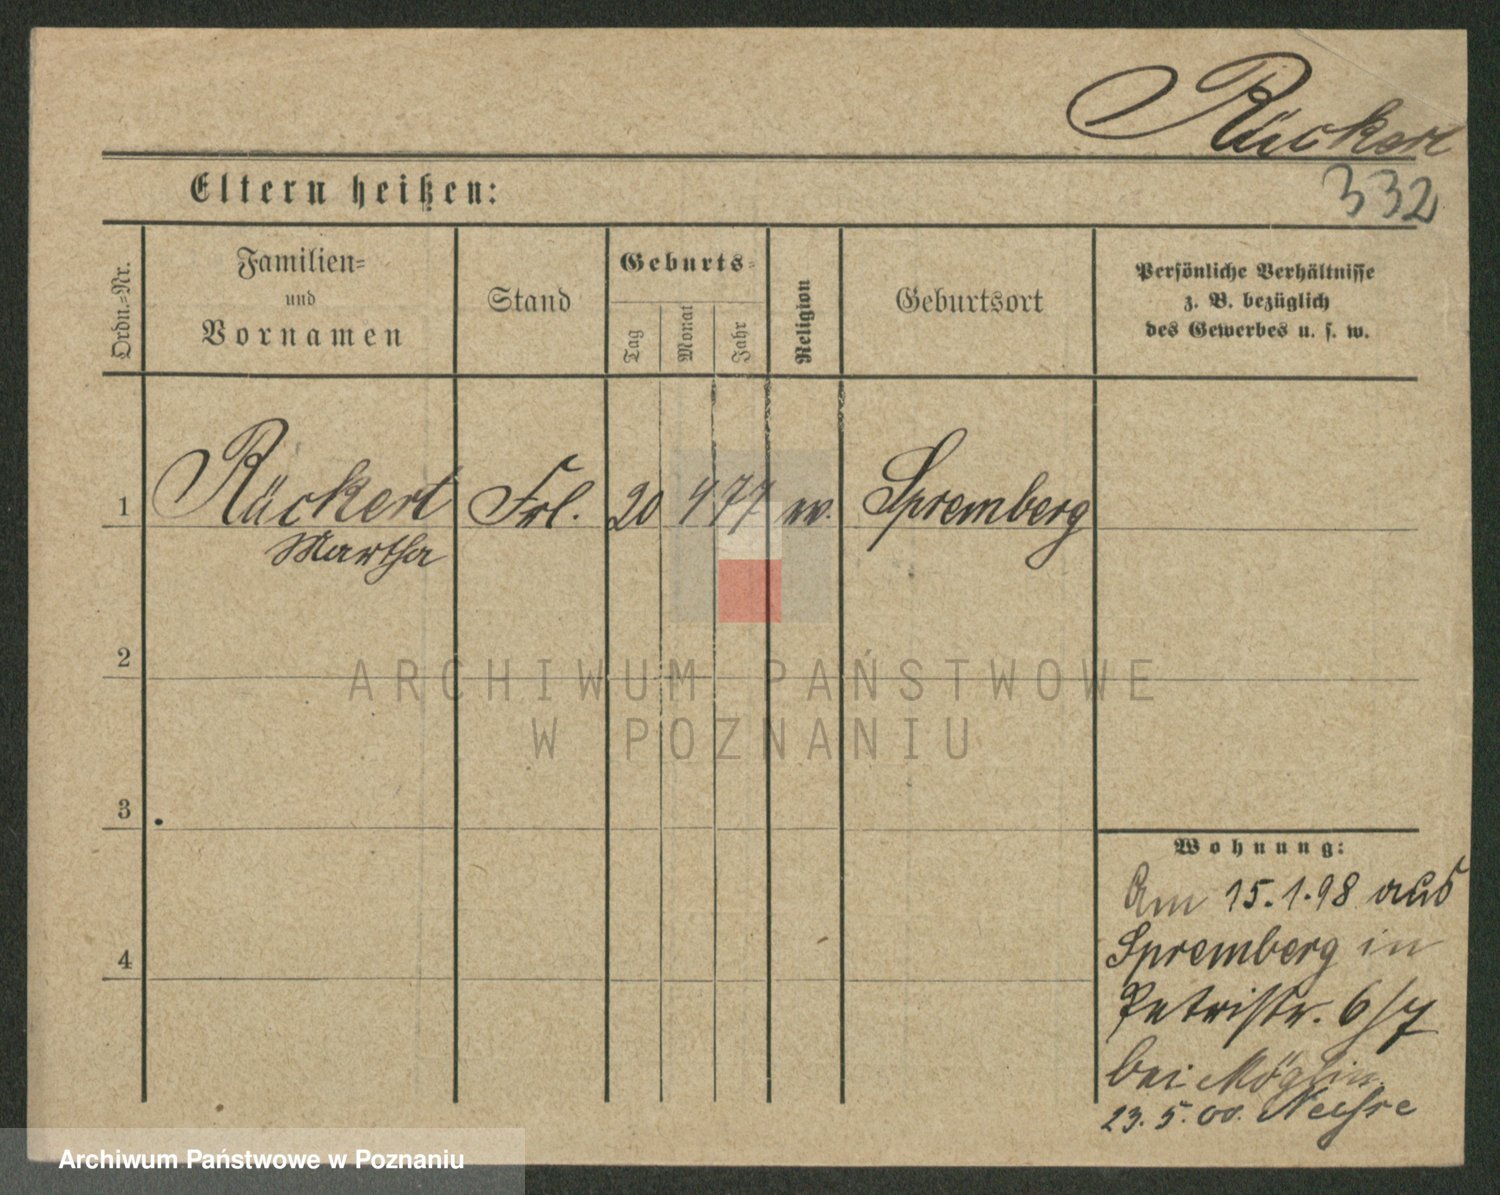 Rückert
332
Eltern heißen:
Ordn.-Nr.
Familien-
und
Vornamen
Stand
Geburts-
Tag
Monat
Jahr
Religion
Geburtsort
Persönliche Verhältnisse
z. B. bezüglich
des Gewerbes u. s. w.
1
Rückert
Martha
Frl.
20
4
77
Spremberg
2
ARCHIWUM PAŃSTWOWE
W POZNANIU
3
4
Wohnung:
Am 15.1.98 aus
Spremberg in
Petristr. 6/7
bei
23.5.00.
Archiwum Państwowe w Poznaniu